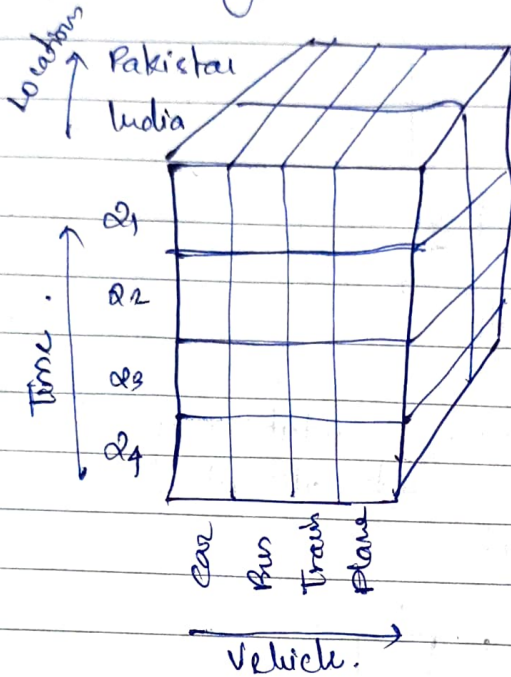 Locations
Pakistan
India
Time.
Q1
Q2
Q3
Q4
Car
Bus
Train
Plane
Vehicle.